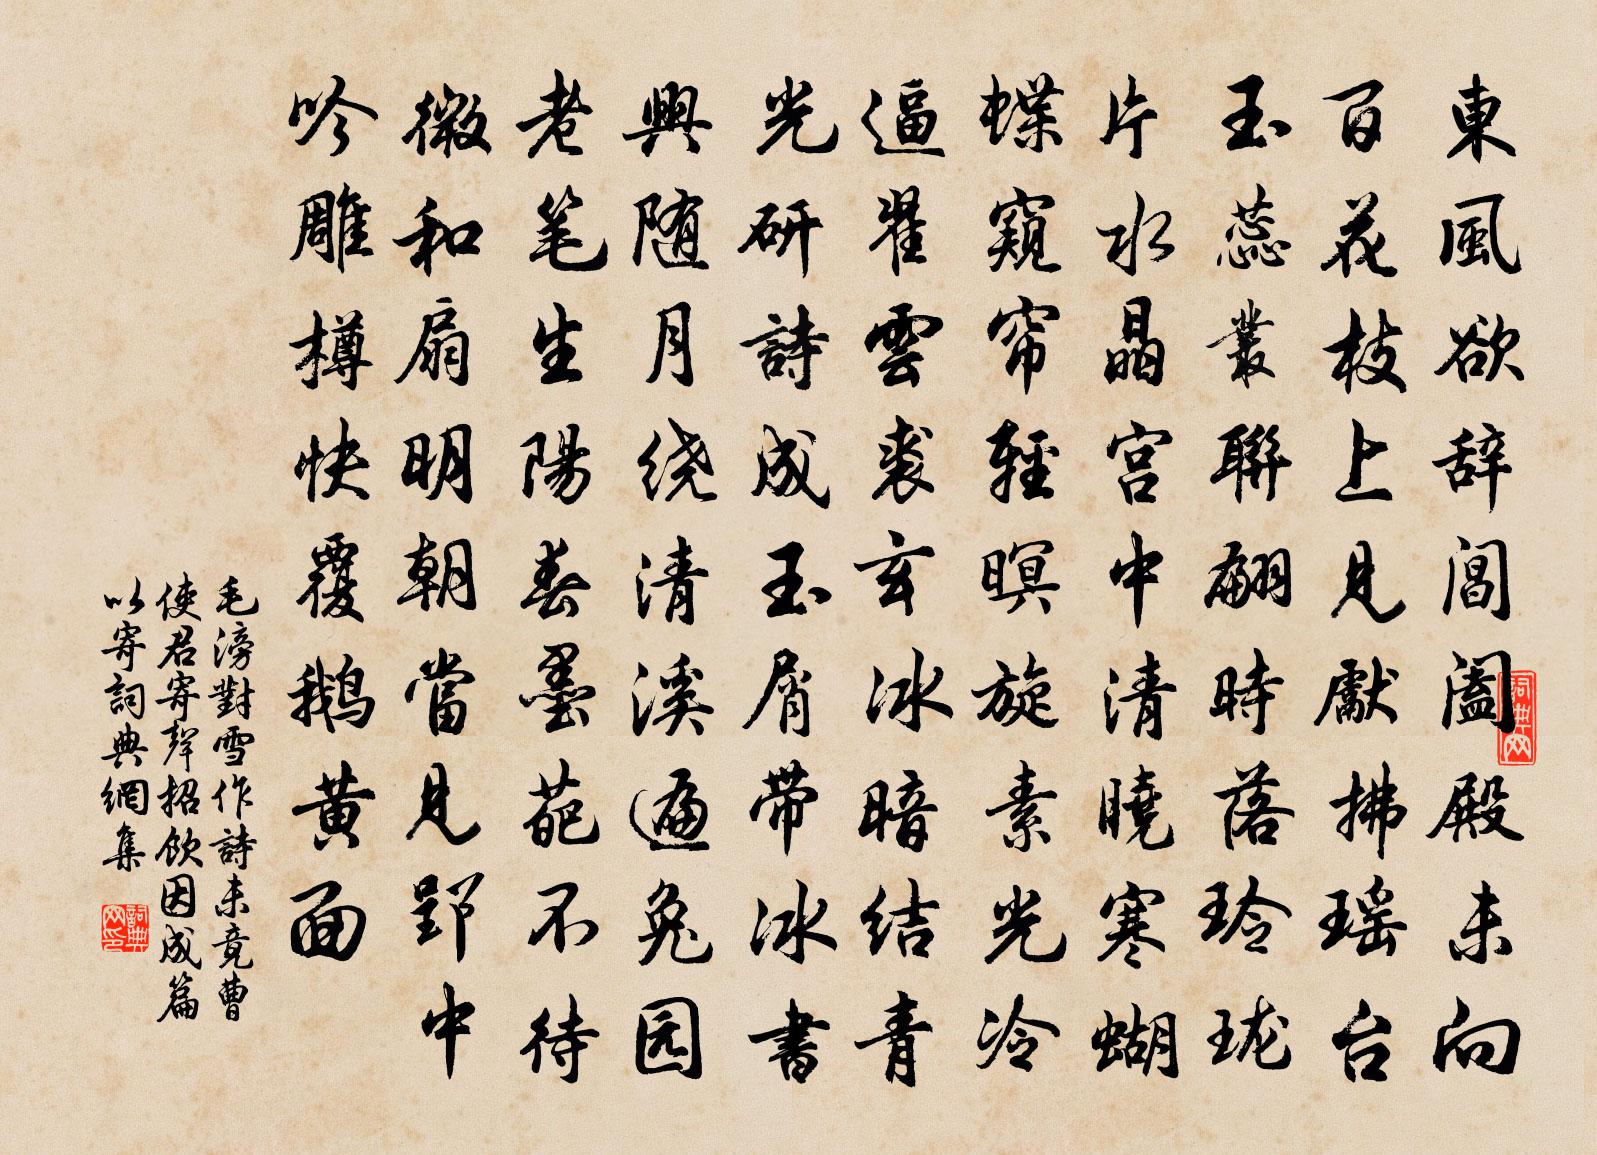 東風欲辞閶闔殿未向
百花枝上見獻拂瑶台
玉蕊叢聯翩時落玲珑
片水晶宫中清曉寒蝴
蝶窺帘輕暝旋素光冷
逼翟雲裘玄冰暗结青
光研詩成玉屑带冰書
興随月绕清溪遍兔园
老笔生陽春墨葩不待
微和扇明朝當見郢中
吟雕樽快覆鹅黄面
毛滂對雪作詩未竟曹
使君寄聲招飲因成篇
以寄詞典網集
詞典网
詞典网印